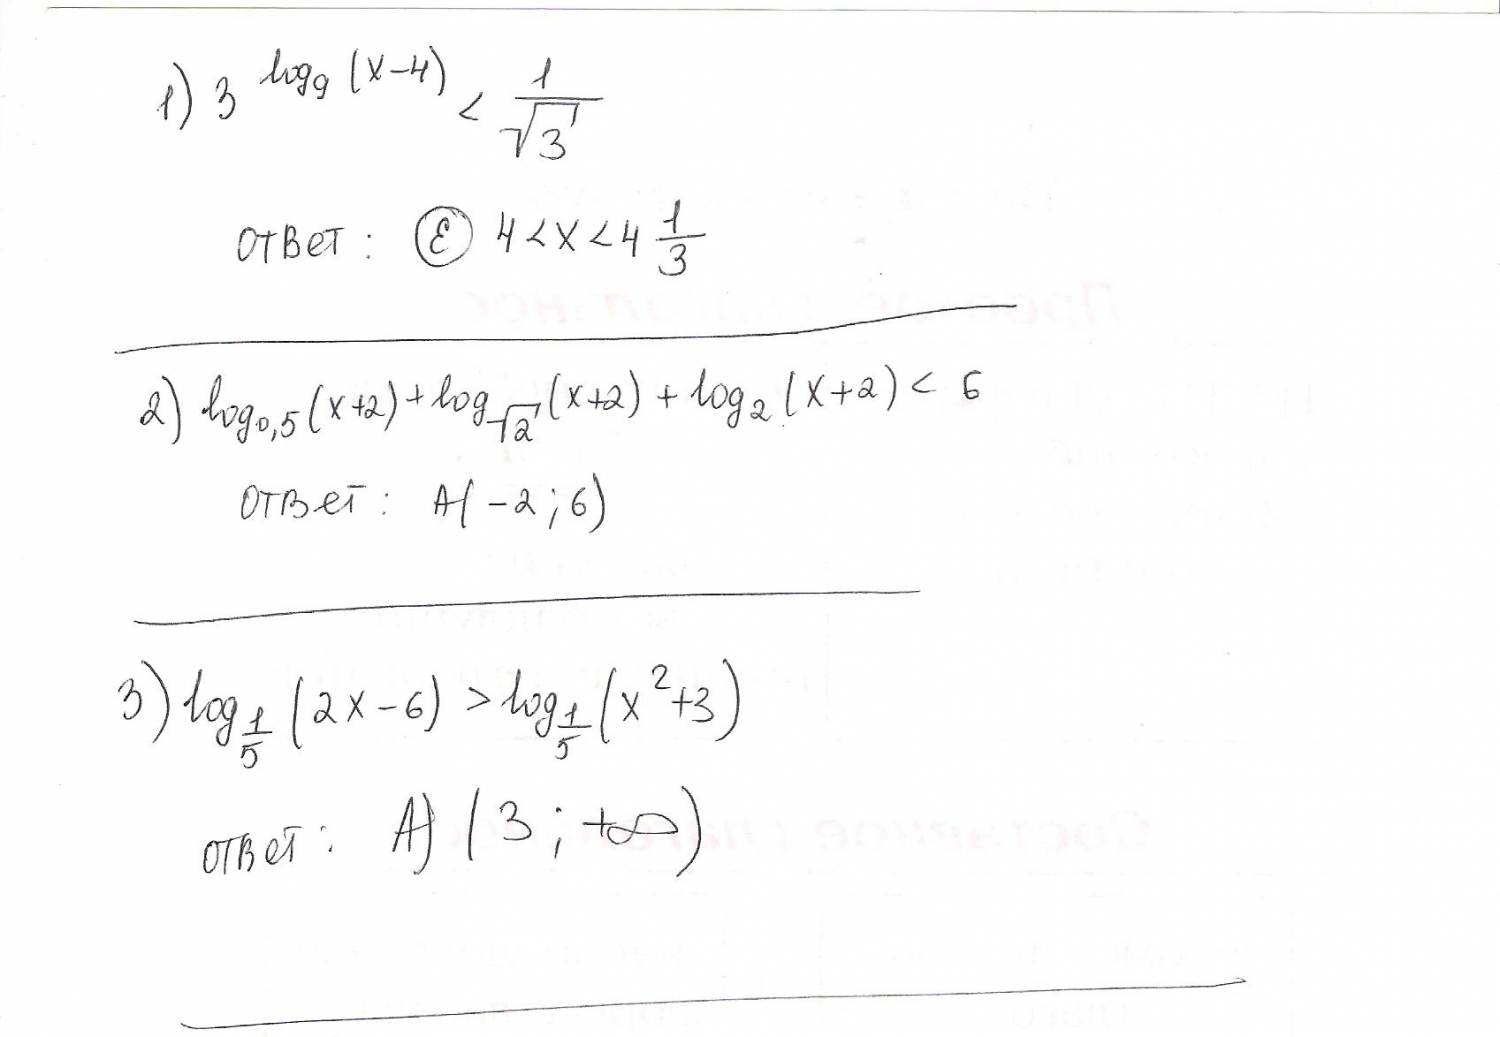 1) 3^log₉(x-4) < 1/√3
ответ: Ⓔ 4<x<4 1/3
2) log₀,₅(x+2)+log_√2(x+2)+log₂(x+2)< 6
ответ: A(-2;6)
3) log_1/5(2x-6)>log_1/5(x²+3)
ответ: A) (3;+∞)